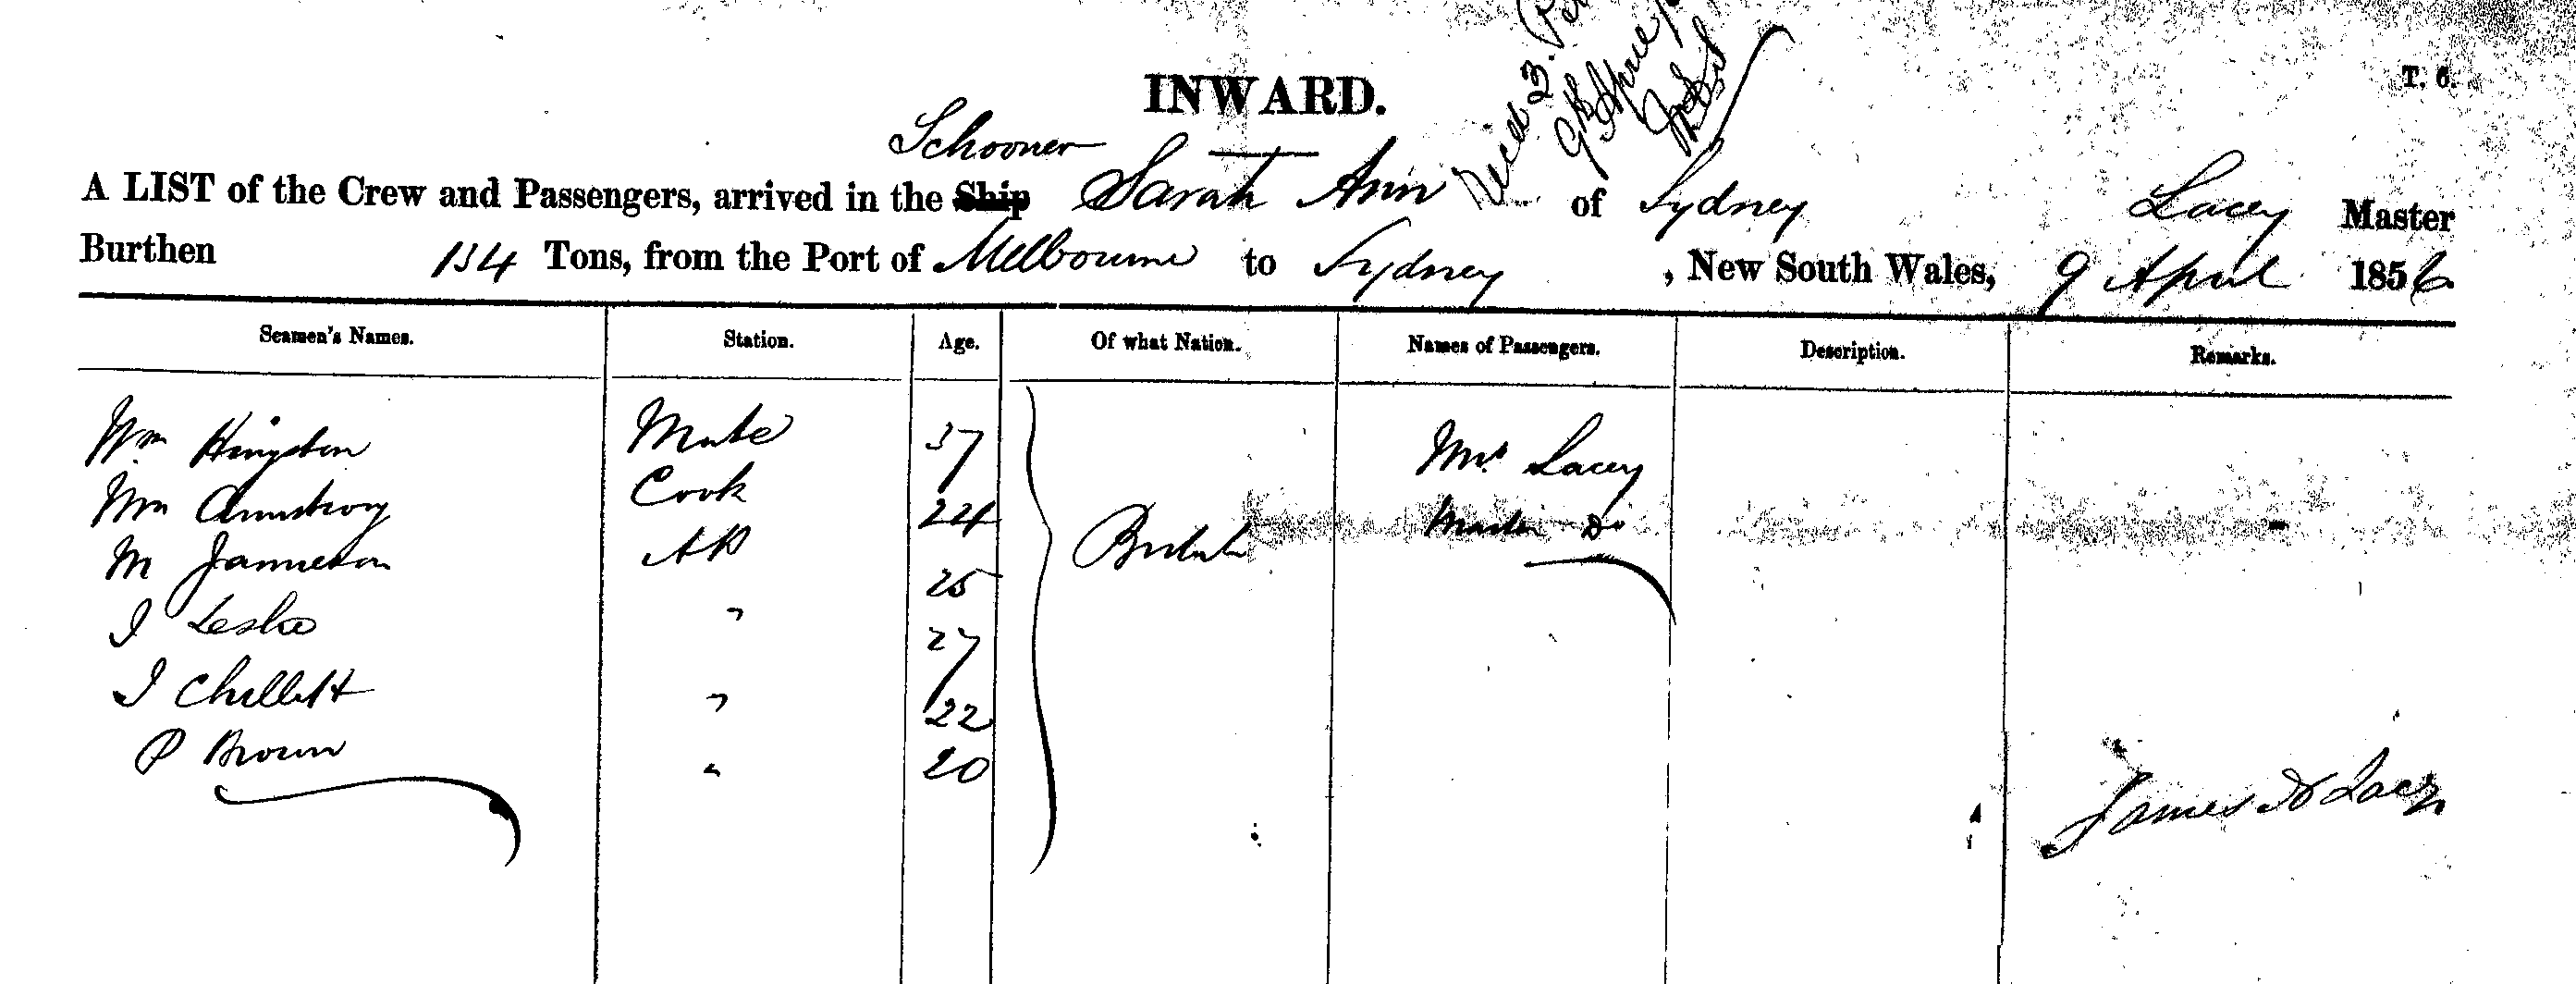 INWARD.
T. 6.
Schooner
A LIST of the Crew and Passengers, arrived in the Ship Sarah Ann of Sydney Lacey Master
Burthen 134 Tons, from the Port of Melbourne to Sydney, New South Wales, 9 April 1856
Seamen's Names. Station. Age. Of what Nation. Names of Passengers. Description. Remarks.
Wm Hingston Mate 37 Mrs Lacey
Wm Armstrong Cook 24 British Master Do
M Jamieson AB 25
J Leslie " 27
J Chellett " 22
P Brown " 20
James Lacey